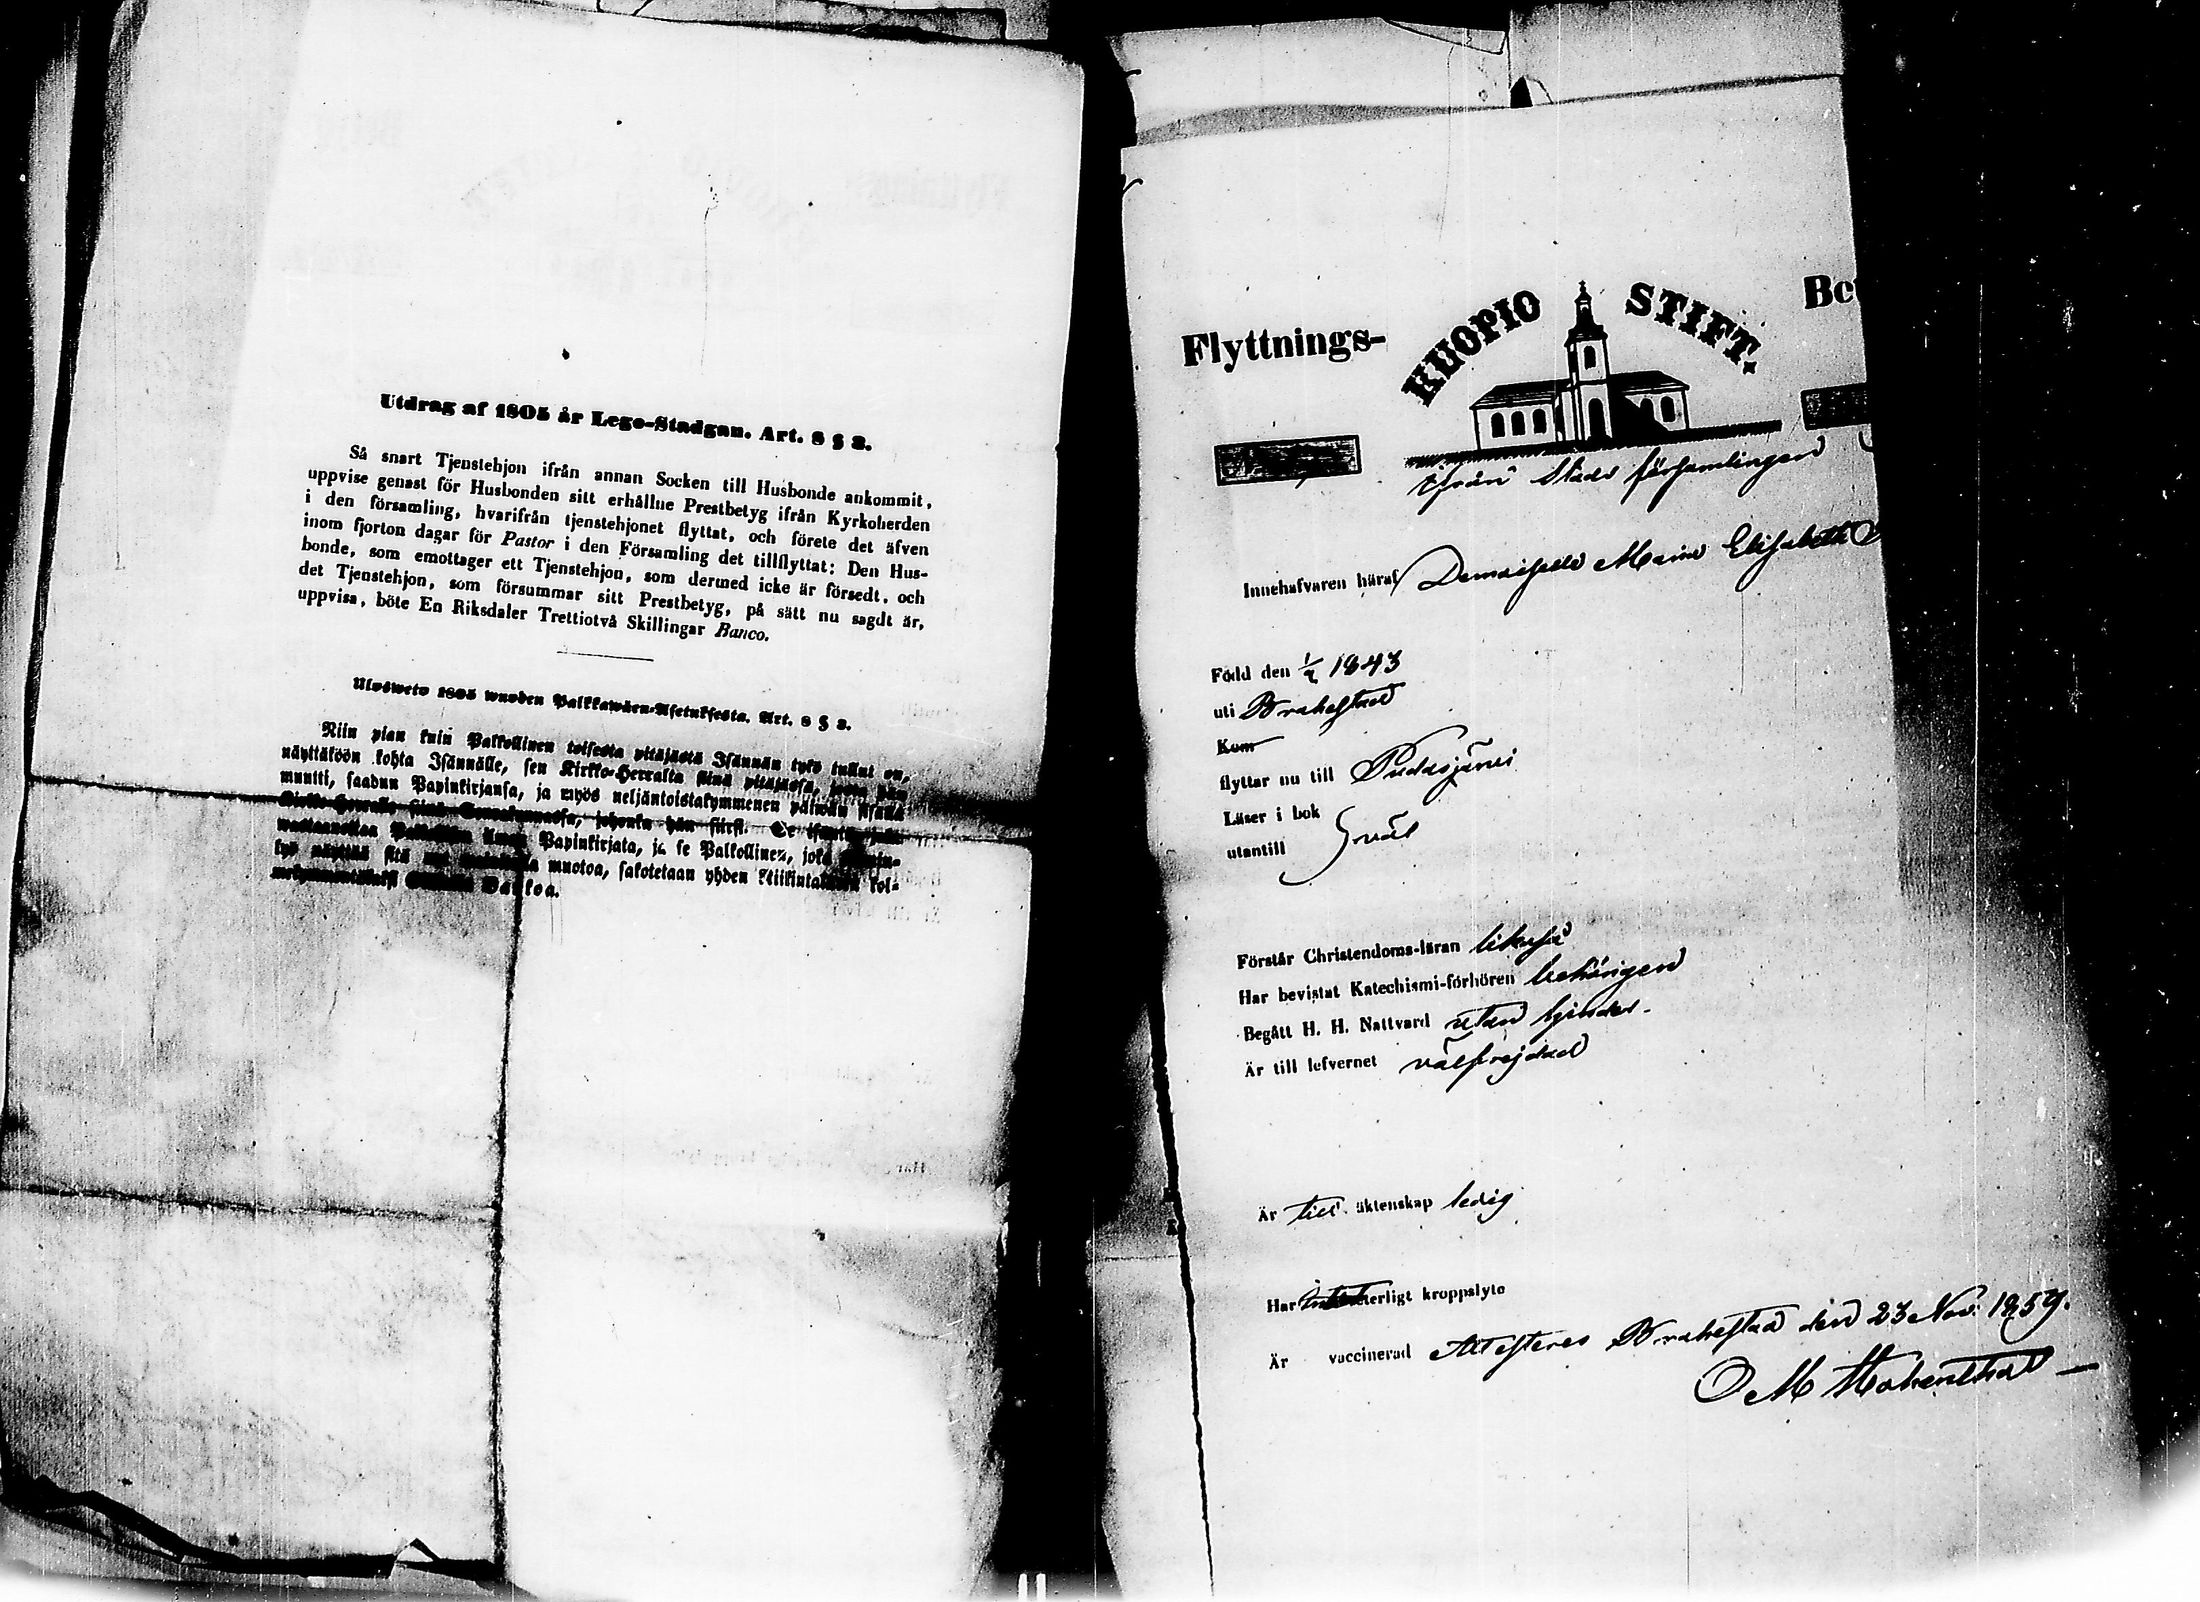 Utdrag af 1805 år Lego-Stadgan. Art. 8 § 2.
Så snart Tjenstehjon ifrån annan Socken till Husbonde ankommit,
uppvise genast för Husbonden sitt erhållne Prestbetyg ifrån Kyrkoherden
i den församling, hvarifrån tjenstehjonet flyttat, och förete det äfven
inom fjorton dagar för Pastor i den Församling det tillflyttat: Den Hus-
bonde, som emottager ett Tjenstehjon, som dermed icke är försedt, och
det Tjenstehjon, som försummar sitt Prestbetyg, på sätt nu sagdt är,
uppvisa, böte En Riksdaler Trettiotvå Skillingar Banco.
Ulosweto 1805 wuoden Palkkawäen-Asetuksesta. Art. 8 § 2.
Niin pian kuin Palkollinen toisesta pitäjästä Isännän tykö tullut on,
näyttäköön kohta Isännälle, sen Kirkko-Herralta siinä pitäjässä, josta hän
muutti, saadun Papinkirjansa, ja myös neljäntoistakymmenen päiwän sisällä
Kirkko-Herralle siinä Seurakunnassa, johonka hän siirsi.
Papinkirjata, ja se Palkollinen, joka
muotoa, sakotetaan yhden Riikintalarin kol-
Bankoa.
Flyttnings-
KUOPIO STIFT.
Be
ifrån Stads församlingen
Innehafvaren häraf Demoiselle Maria Elisabeth
Född den 1/2 1843
uti Brahestad
Kom
flyttar nu till Pudasjärvi
Läser i bok
utantill } väl
Förstår Christendoms-läran likaså
Har bevistat Katechismi-förhören behörigen
Begått H. H. Nattvard utan hinder.
Är till lefvernet välfrejdad
Är till äktenskap ledig
Har intet terligt kroppslyte
Är vaccinerad Attesteras Brahestad den 23 Nov. 1859.